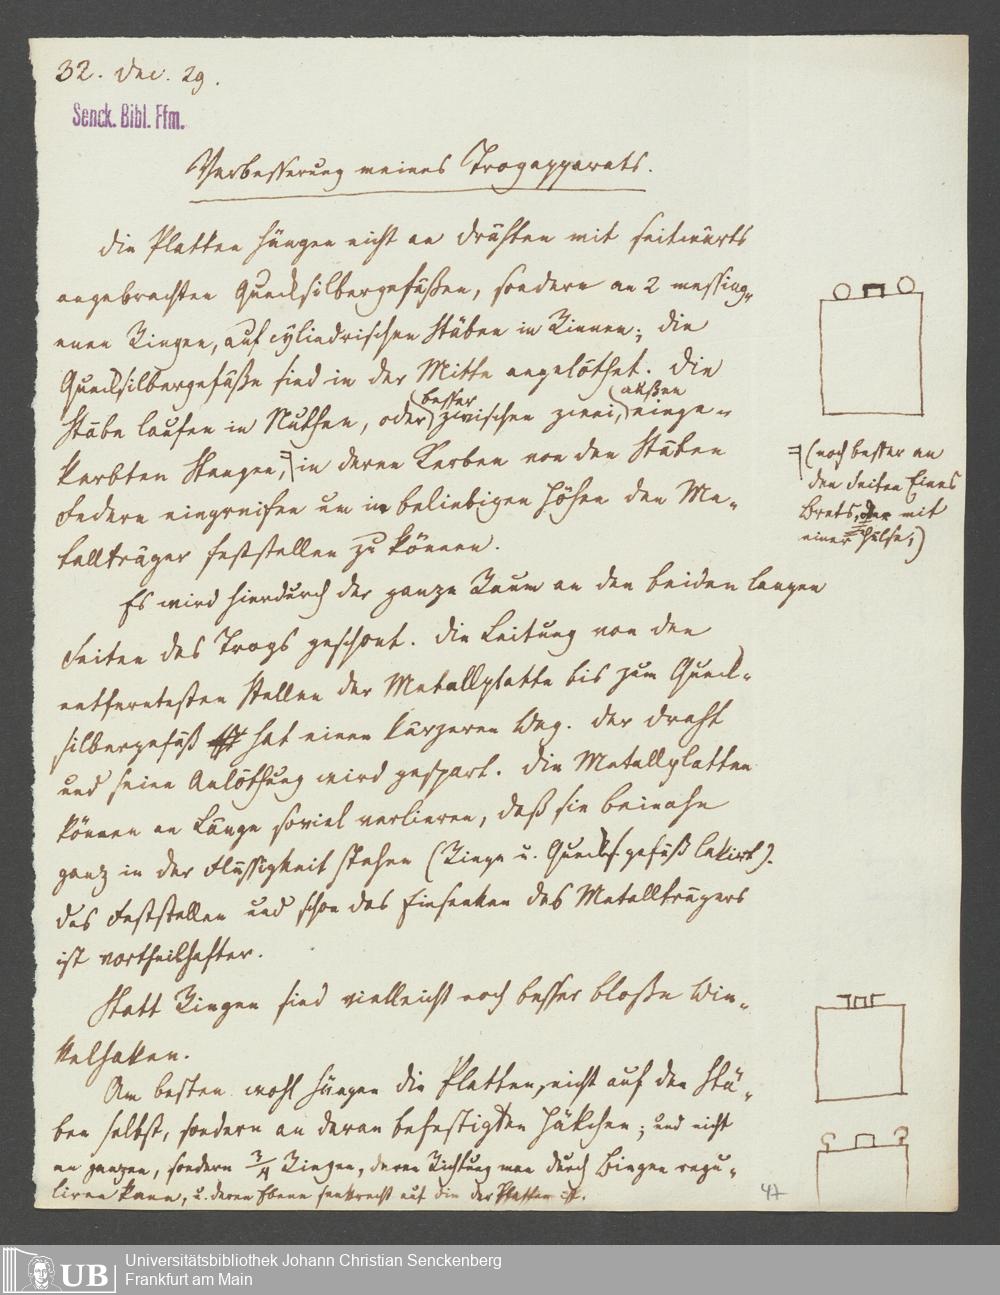 32. Dec. 29.
Senck. Bibl. Ffm.
Verbesserung meines Trogapparats.
Die Platten hängen nicht an Drähten mit seitwärts
angebrachten Quecksilbergefäßen, sondern an 2 messing-
enen Ringen, auf cylindrischen Stäben in Rinnen; die
Quecksilbergefäße sind in der Mitte angelöthet. Die
besser außen
Stäbe laufen in Nuthen, oder zwischen zwei, einge-
kerbten Stangen, in deren Kerben von den Stäben
Federn eingreifen um in beliebigen Höhen den Me-
tallträger feststellen zu können.
(noch besser an
den Seiten Eines
Brets, mit
einer Hülse,)
Es wird hierdurch der ganze Raum an den beiden langen
Seiten des Trogs geschont. Die Leitung von den
entferntesten Stellen der Metallplatte bis zum Queck-
silbergefäß hat einen kürzeren Weg. Der Draht
und seine Anlöthung wird gespart. Die Metallplatten
können an Länge soviel verlieren, daß sie beinahe
ganz in der Flüssigkeit stehen (Ringe u. Quecks.gefäß lakirt).
Das Feststellen und schon das Einsenken des Metallträgers
ist vortheilhafter.
Statt Ringen sind vielleicht noch besser bloße Win-
kelhaken.
Am besten wohl hängen die Platten, nicht auf den Stä-
ben selbst, sondern an daran befestigten Häkchen; und nicht
an ganzen, sondern 3/4 Ringen, deren Richtung man durch Biegen regu-
liren kann, u. deren Ebene senkrecht auf die der Platten ist.
47
UB
Universitätsbibliothek Johann Christian Senckenberg
Frankfurt am Main